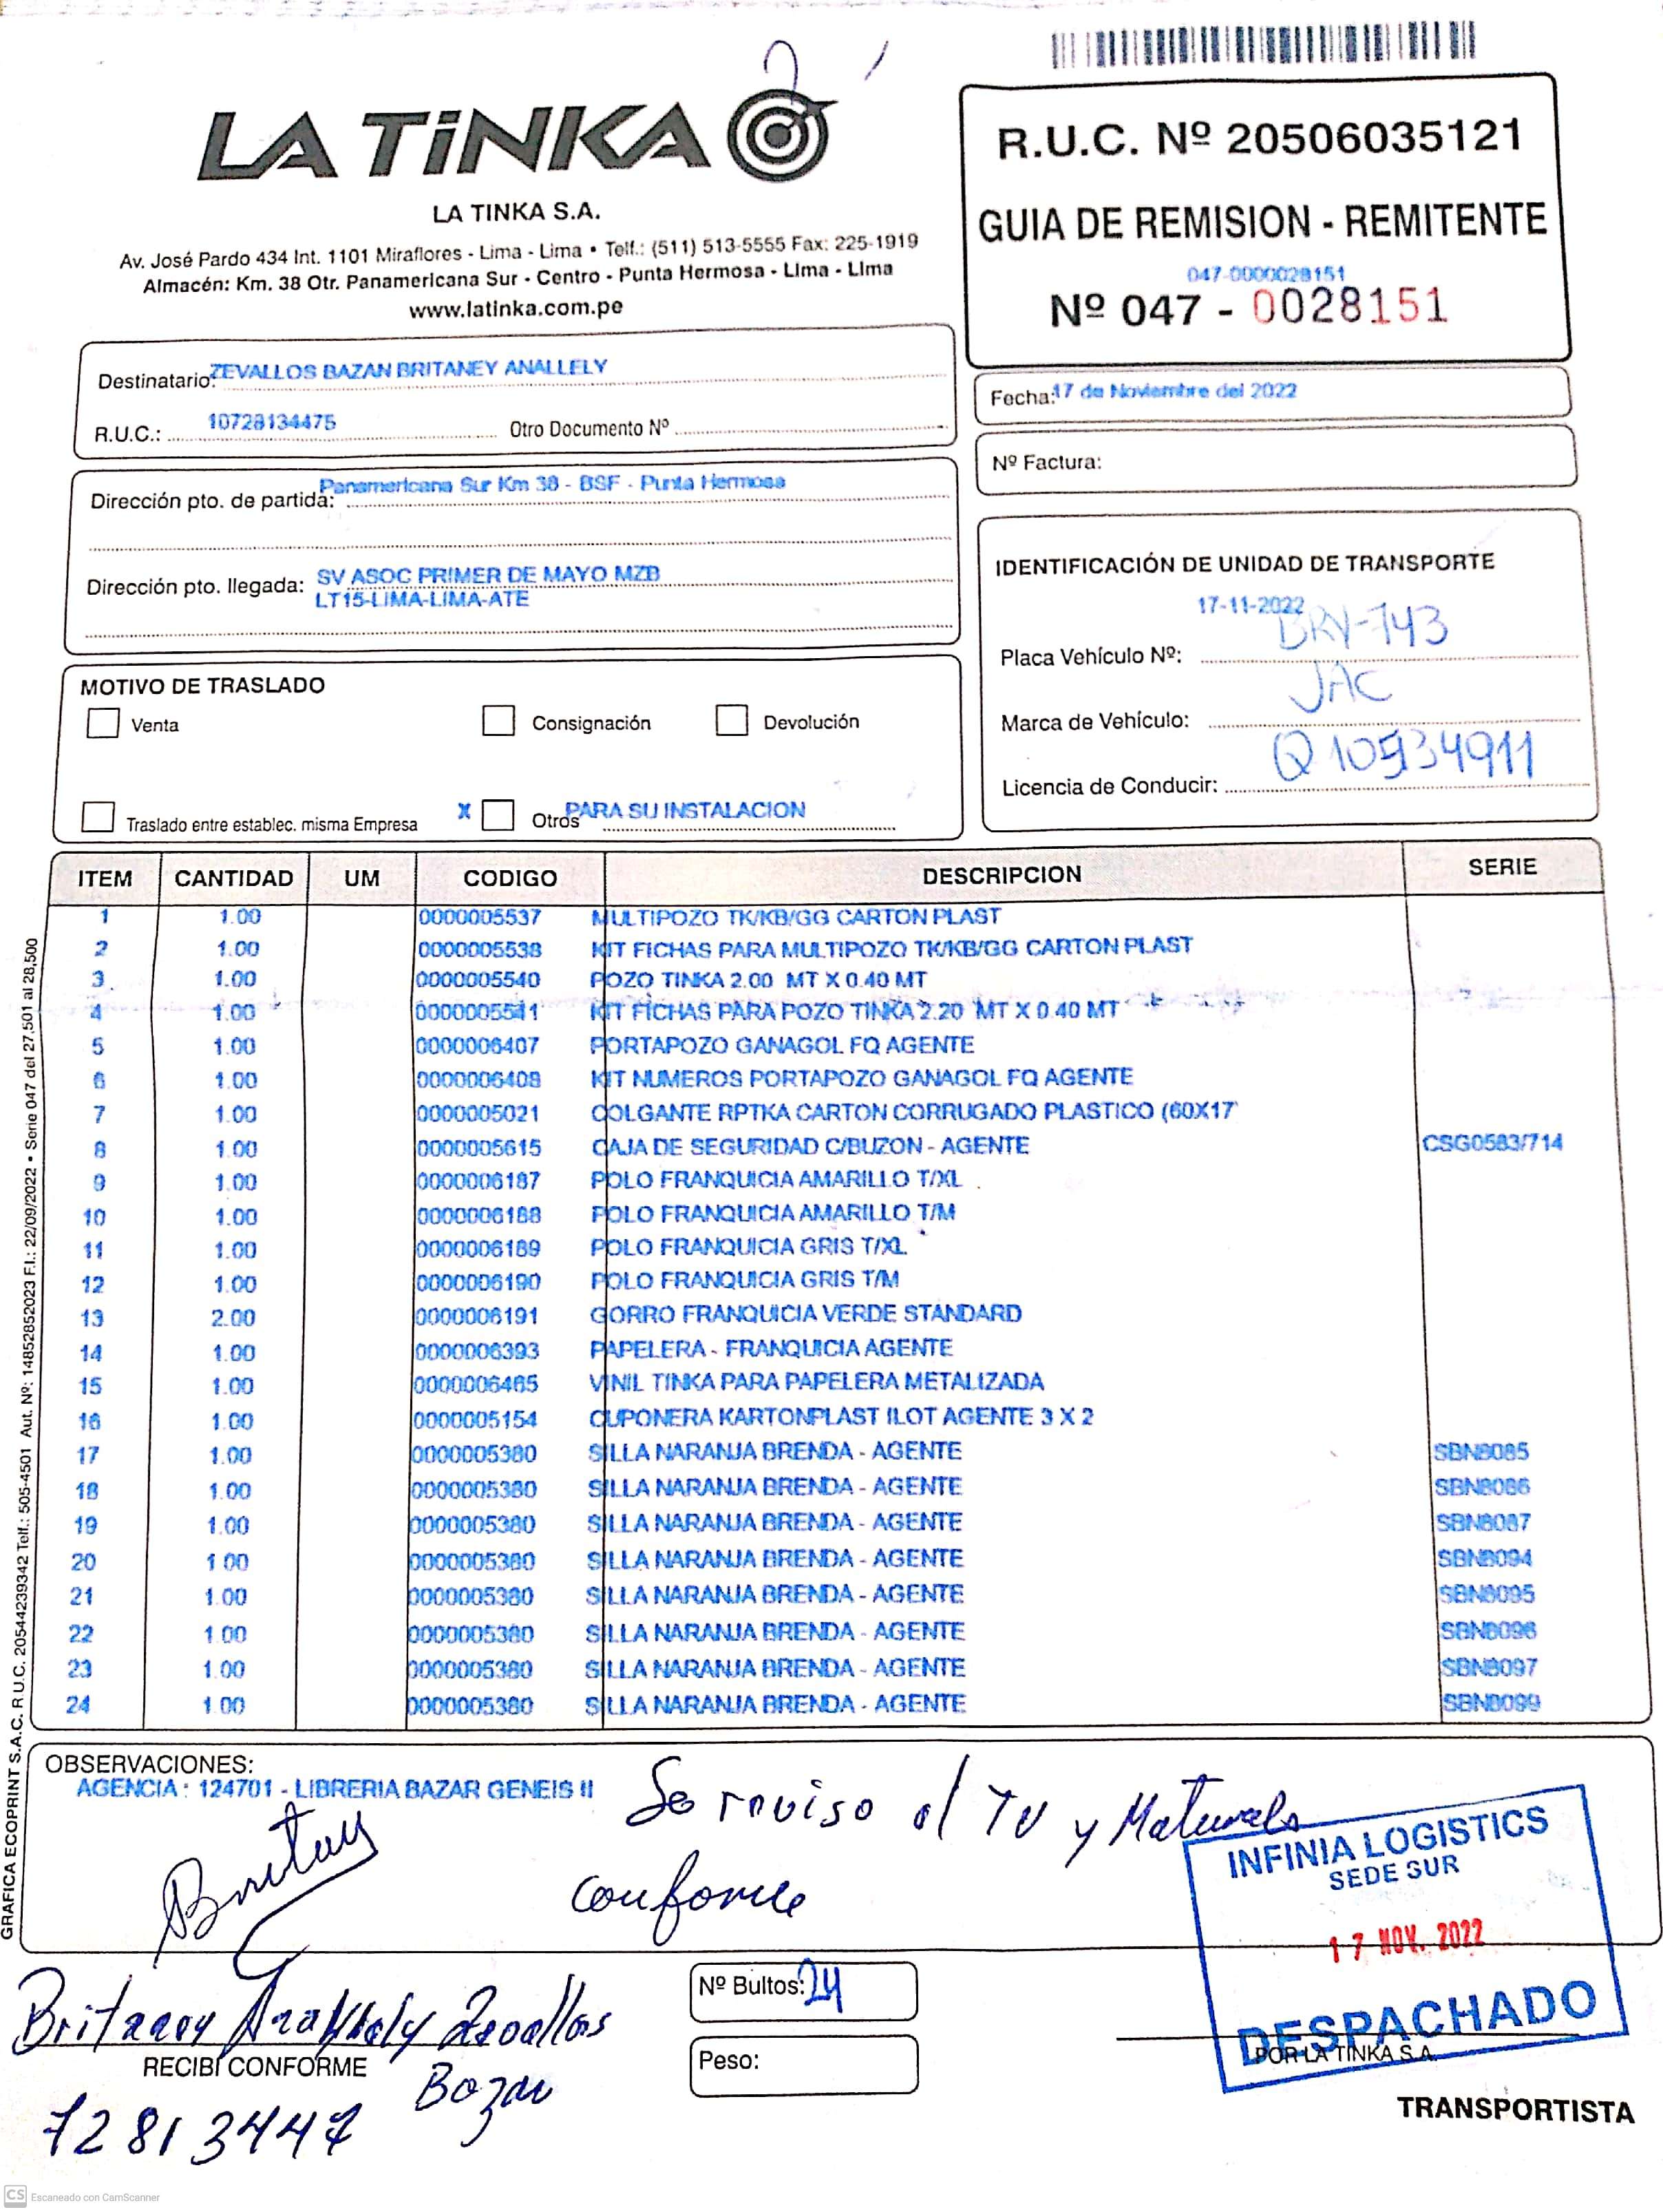 LA TiNKA
LA TINKA S.A.
Av. José Pardo 434 Int. 1101 Miraflores - Lima - Lima • Telf.: (511) 513-5555 Fax: 225-1919
Almacén: Km. 38 Otr. Panamericana Sur - Centro - Punta Hermosa - Lima - Lima
www.latinka.com.pe
R.U.C. Nº 20506035121
GUIA DE REMISION - REMITENTE
047-0000028151
Nº 047 - 0028151
Destinatario: ZEVALLOS BAZAN BRITANEY ANALLELY
R.U.C.: 10728134475 Otro Documento Nº
Fecha: 17 de Noviembre del 2022
Nº Factura:
Dirección pto. de partida: Panamericana Sur Km 38 - BSF - Punta Hermosa
Dirección pto. llegada: SV ASOC PRIMER DE MAYO MZB
LT15-LIMA-LIMA-ATE
IDENTIFICACIÓN DE UNIDAD DE TRANSPORTE
17-11-2022
Placa Vehículo Nº: BRV-743
Marca de Vehículo: JAC
Licencia de Conducir: Q10534911
MOTIVO DE TRASLADO
Venta Consignación Devolución
Traslado entre establec. misma Empresa X Otros PARA SU INSTALACION
ITEM CANTIDAD UM CODIGO DESCRIPCION SERIE
1 1.00 0000005537 MULTIPOZO TK/KB/GG CARTON PLAST
2 1.00 0000005538 KIT FICHAS PARA MULTIPOZO TK/KB/GG CARTON PLAST
3 1.00 0000005540 POZO TINKA 2.00 MT X 0.40 MT
4 1.00 0000005541 KIT FICHAS PARA POZO TINKA 2.20 MT X 0.40 MT
5 1.00 0000006407 PORTAPOZO GANAGOL FQ AGENTE
6 1.00 0000006408 KIT NUMEROS PORTAPOZO GANAGOL FQ AGENTE
7 1.00 0000005021 COLGANTE RPTKA CARTON CORRUGADO PLASTICO (60X17
8 1.00 0000005615 CAJA DE SEGURIDAD C/BUZON - AGENTE CSG0583/714
9 1.00 0000006187 POLO FRANQUICIA AMARILLO T/XL
10 1.00 0000006188 POLO FRANQUICIA AMARILLO T/M
11 1.00 0000006189 POLO FRANQUICIA GRIS T/XL
12 1.00 0000006190 POLO FRANQUICIA GRIS T/M
13 2.00 0000006191 GORRO FRANQUICIA VERDE STANDARD
14 1.00 0000006393 PAPELERA - FRANQUICIA AGENTE
15 1.00 0000006465 VINIL TINKA PARA PAPELERA METALIZADA
16 1.00 0000005154 CUPONERA KARTONPLAST ILOT AGENTE 3 X 2
17 1.00 0000005380 SILLA NARANJA BRENDA - AGENTE SBN8085
18 1.00 0000005380 SILLA NARANJA BRENDA - AGENTE SBN8086
19 1.00 0000005380 SILLA NARANJA BRENDA - AGENTE SBN8087
20 1.00 0000005380 SILLA NARANJA BRENDA - AGENTE SBN8094
21 1.00 0000005380 SILLA NARANJA BRENDA - AGENTE SBN8095
22 1.00 0000005380 SILLA NARANJA BRENDA - AGENTE SBN8096
23 1.00 0000005380 SILLA NARANJA BRENDA - AGENTE SBN8097
24 1.00 0000005380 SILLA NARANJA BRENDA - AGENTE SBN8099
GRAFICA ECOPRINT S.A.C. R.U.C. 20544239342 Telf.: 505-4501 Aut. Nº: 14852852023 F.I.: 22/09/2022 • Serie 047 del 27,501 al 28,500
OBSERVACIONES:
AGENCIA : 124701 - LIBRERIA BAZAR GENEIS II
Se reviso el TV y
conforme
INFINIA LOGISTICS
SEDE SUR
17 NOV. 2022
DESPACHADO
Britaney Anallely Zevallos
Bazan
RECIBI CONFORME
72813447
Nº Bultos: 24
Peso:
POR LA TINKA S.A.
TRANSPORTISTA
CS Escaneado con CamScanner